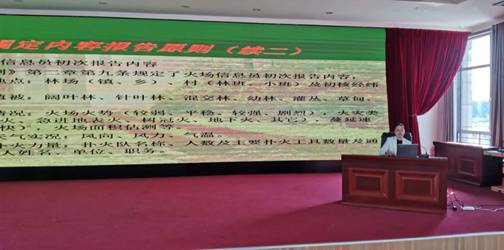 规定内容报告原则（续二）
信息员初次报告内容
》第二章第九条规定了火场信息员初次报告内容，
地点，林场（镇、乡）、村（林班、小班）及初核经纬
植被，阔叶林、针叶林、混交林、幼林、灌丛、草甸。
情况，火场火势（较弱、平稳、较强、剧烈），火灾类
火、急进地表火、树冠火、地下火、其它），蔓延速
快）、火场面积估测等。
（实况，风向、风力、气温。
扑火力量，扑火队名称、人数及主要扑火工具数量及通
人姓名、单位、职务。